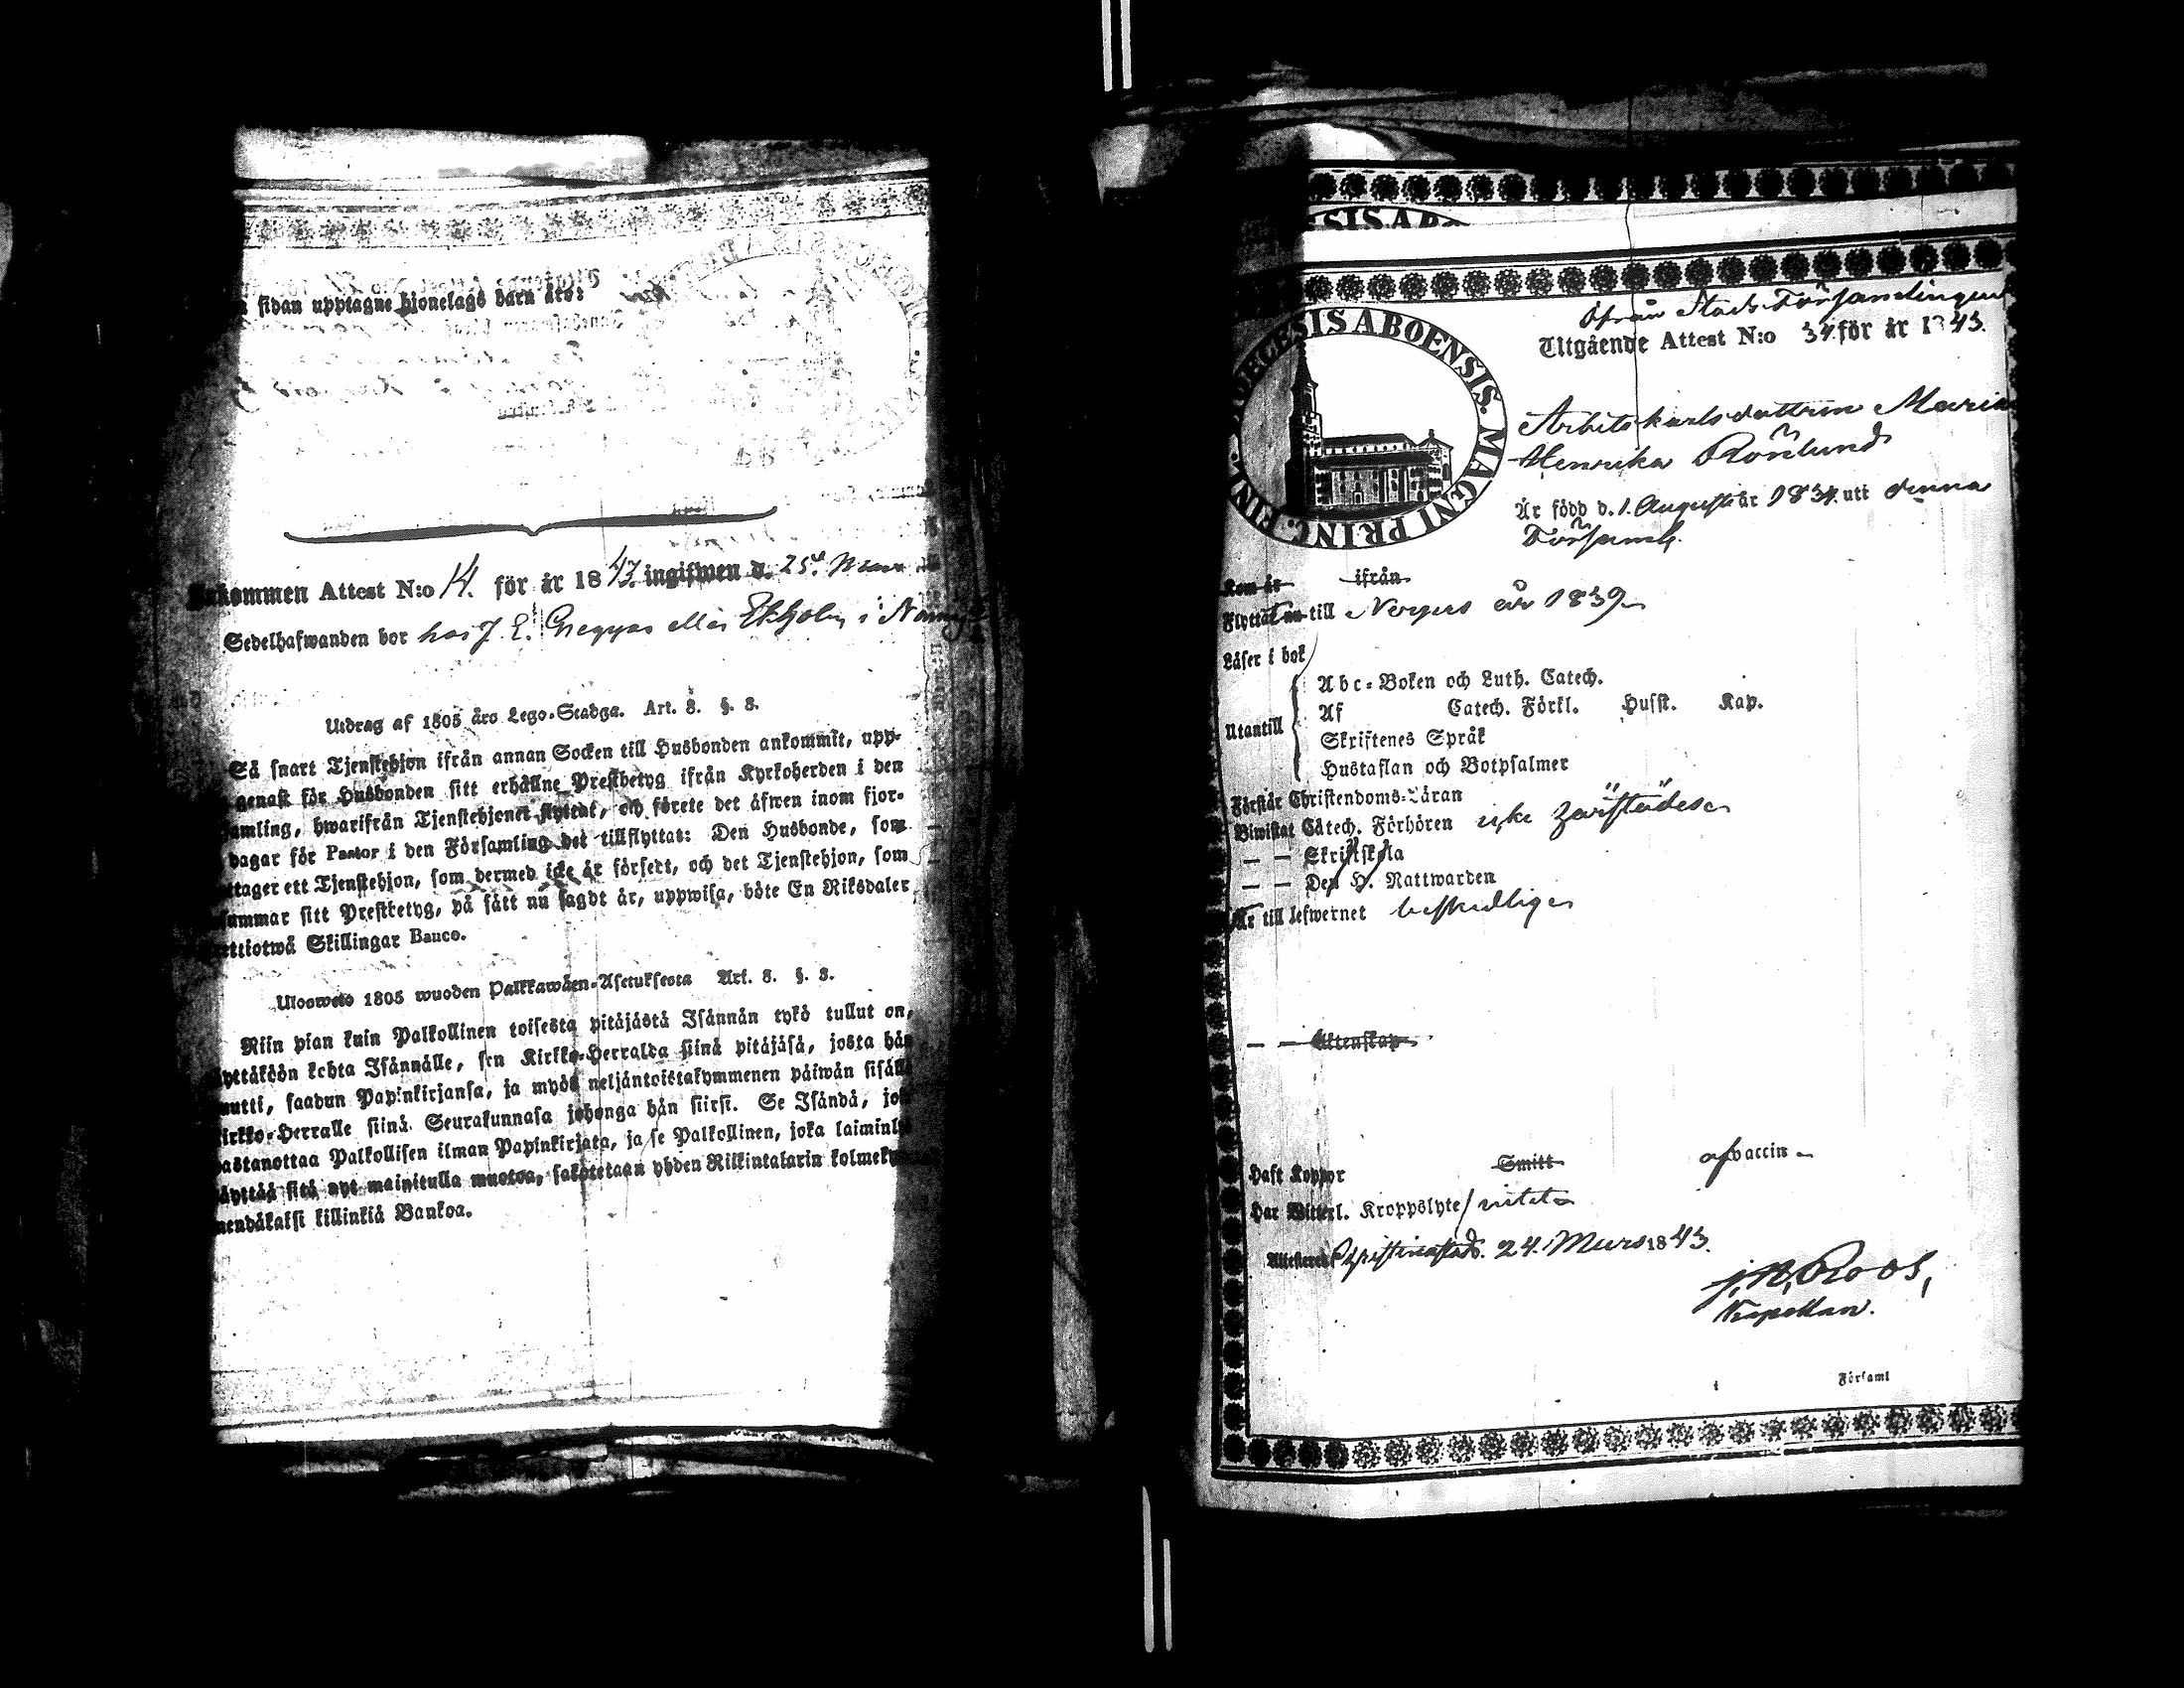 sidan upptagne hjonelags barn äro:
Inkommen Attest N:o 14. för år 1843. ingifwen d. 25. Mars
Sedelhafwanden bor hos J. E. Greggas eller Ekholm i
Utdrag af 1805 års Lego-Stadga. Art. 8. §. 8.
Så snart Tjenstehjon ifrån annan Socken till Husbonden ankommit, upp-
genast för Husbonden sitt erhållne Prestbetyg ifrån Kyrkoherden i den
amling, hwarifrån Tjenstehjonet flyttat, och förete det äfwen inom fjor-
dagar för Pastor i den Församling det tillflyttat: Den Husbonde, som
ttager ett Tjenstehjon, som dermed icke är försedt, och det Tjenstehjon, som
summar sitt Prestbetyg, på sätt nu sagdt är, uppwisa, böte En Riksdaler
ttiotwå Skillingar Banco.
Ulosweto 1805 wuoden Palkkawäen-Asetuksesta Art. 8. §. 8.
Niin pian kuin Palkollinen toisesta pitäjästä Isännän tykö tullut on,
yttäköön kohta Isännälle, sen Kirkko-Herralda siinä pitäjäsä, josta hän
muutti, saadun Papinkirjansa, ja myös neljäntoistakymmenen päiwän sisällä
irkko-Herralle siinä Seurakunnasa johonga hän siirsi. Se Isändä, jok
wastanottaa Palkollisen ilman Papinkirjata, ja se Palkollinen, joka laiminly
äyttää sitä nyt mainitulla muotoa, sakotetaan yhden Riikintalarin kolmeky
mendäkaksi killinkiä Bankoa.
SIS ABO
DIOECESIS ABOENSIS. MAGNI PRINC. FINL.
Ifrån Stads Församlingen
Utgående Attest N:o 34 för år 1843.
Arbetskarlsdottren Maria
Henrika Rönlund
Är född d. 1. Augusti år 1834. uti denna
Församl.
Kom år ifrån
Flyttat nu till Nerpes år 1839
Läser i bok
Utantill
Abc-Boken och Luth. Catech.
Af Catech. Förkl. Husst. Kap.
Skriftenes Språk
Hustaflan och Botpsalmer
Förstår Christendoms-Läran
Biwistat Catech. Förhören icke härstädes
— — Skriftskola
— — Den H. Nattwarden
Är till lefwernet beskedlig
— — Äktenskap
Haft Koppor Smitt af vaccin
Har Witterl. Kroppslyte intet
Attesterar Christinestad. 24. Mars 1843.
J. N. Roos,
Kapellan.
i Församl